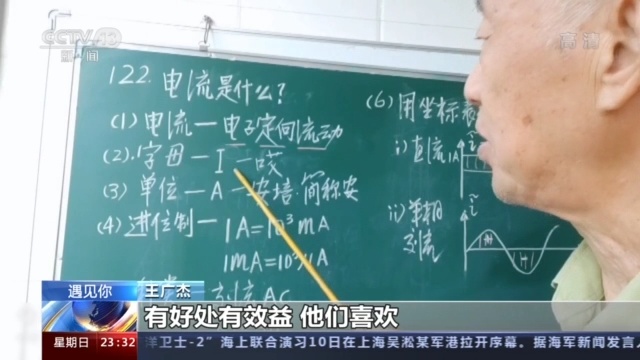 CCTV 13
新闻
高清
122. 电流是什么?
(1) 电流—电子定向流动
(2). 字母—I—哎
(3) 单位—A—安培·简称安
(4) 进位制—1A=10³mA
1mA=10³
AC
(6) 用坐标表
i) 直流
1A
i
ii) 单相
交流
i
遇见你
王广杰
有好处有效益 他们喜欢
星期日 23:32 洋卫士-2”海上联合演习10日在上海吴淞某军港拉开序幕。据海军新闻发言